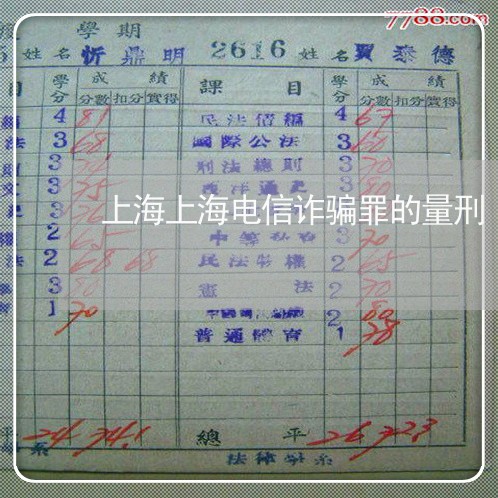 7788.com
學期
姓名 忻鼎明 2616 姓名 賈泰德
目 學分 成績 課目 學分 成績
分數 扣分 實得 分數 扣分 實得
4 81 民法債編 4 67
法 3 68 國際公法 3 60
3 刑法總則 3 70
3 75 西洋通史 3 80
上海上海电信诈骗罪的量刑
2 65 3 70
法 2 68 68 民法物權 2 65
3 80 憲法 2 70
1 70 2 80
普通體育 1 78
平 24 74.1 總平 26 72.3
系 法律學系